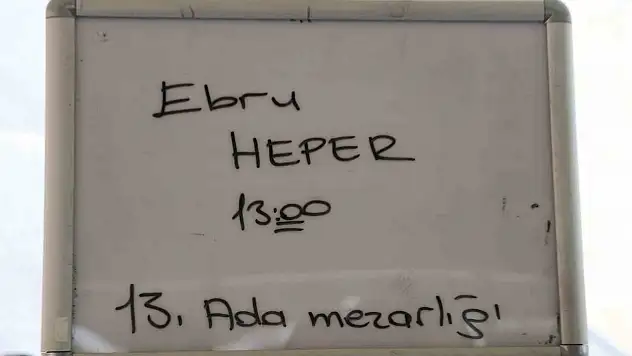 Ebru
HEPER
13:00
13. Ada mezarlığı